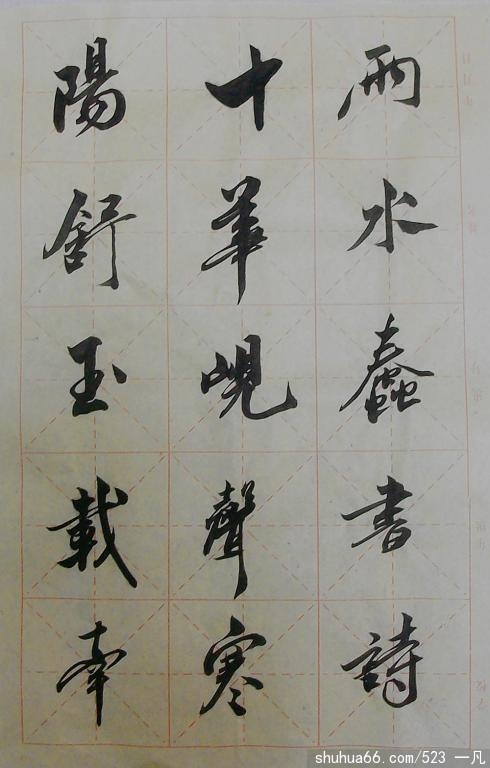 雨水蠢書詩
十華峴聲寒
陽舒玉載
shuhua66.com/523 一凡